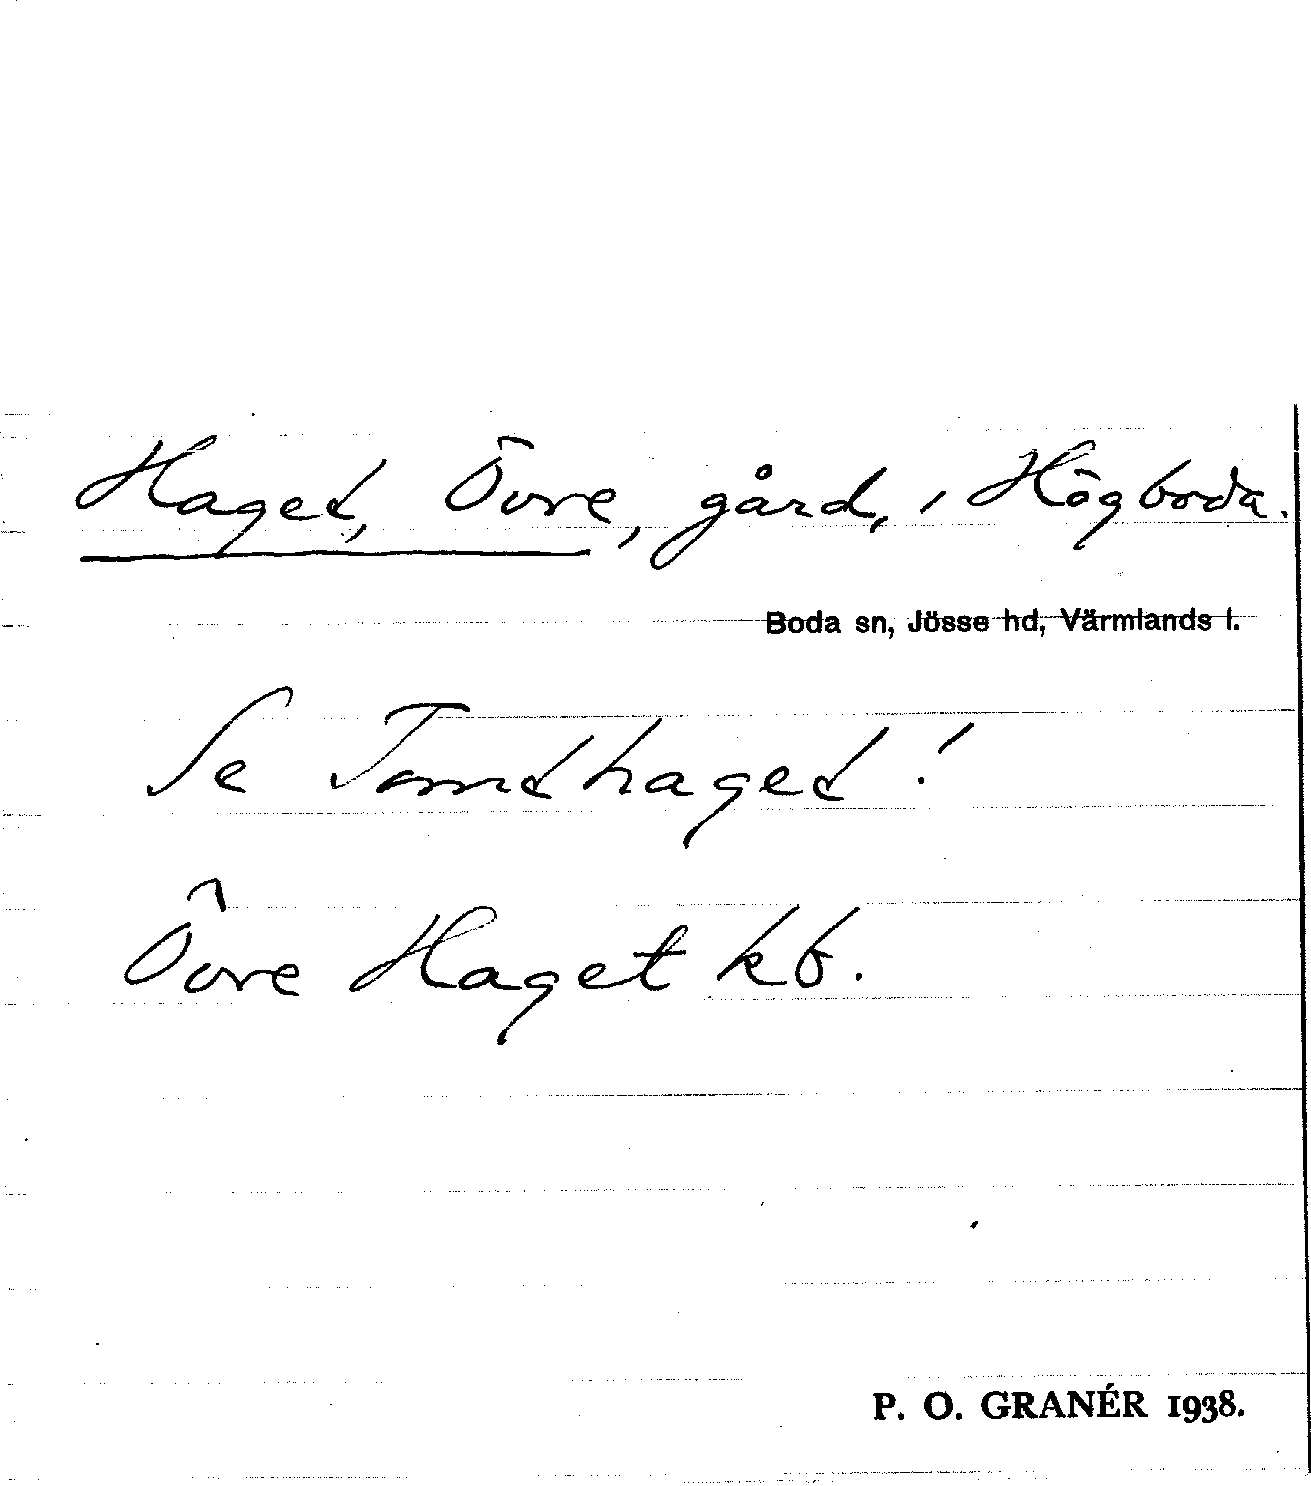 Haget, Övre, gård, i Högboda.
Boda sn, Jösse hd, Värmlands l.
Se Tomthaget!
Övre Haget kb.
P. O. GRANÉR 1938.